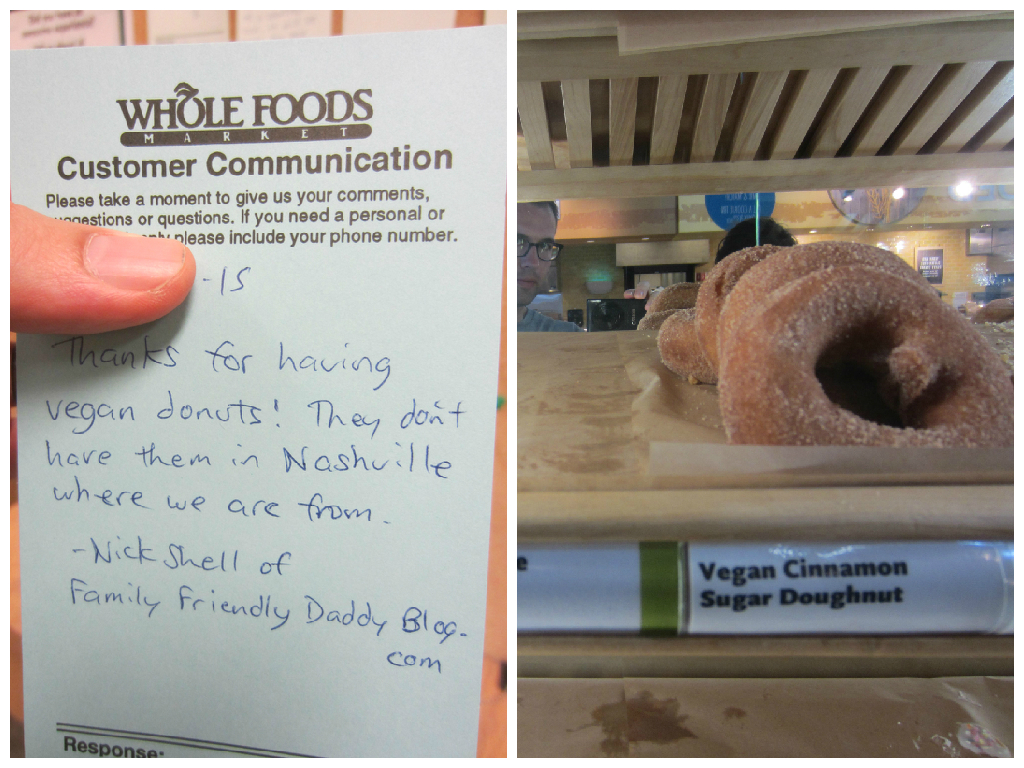 WHOLE FOODS
MARKET
Customer Communication
Please take a moment to give us your comments,
suggestions or questions. If you need a personal or
please include your phone number.
-15
Thanks for having
vegan donuts! They don't
have them in Nashville
where we are from.
-Nick Shell of
Family Friendly Daddy Blog.
com
Response:
e
Vegan Cinnamon
Sugar Doughnut